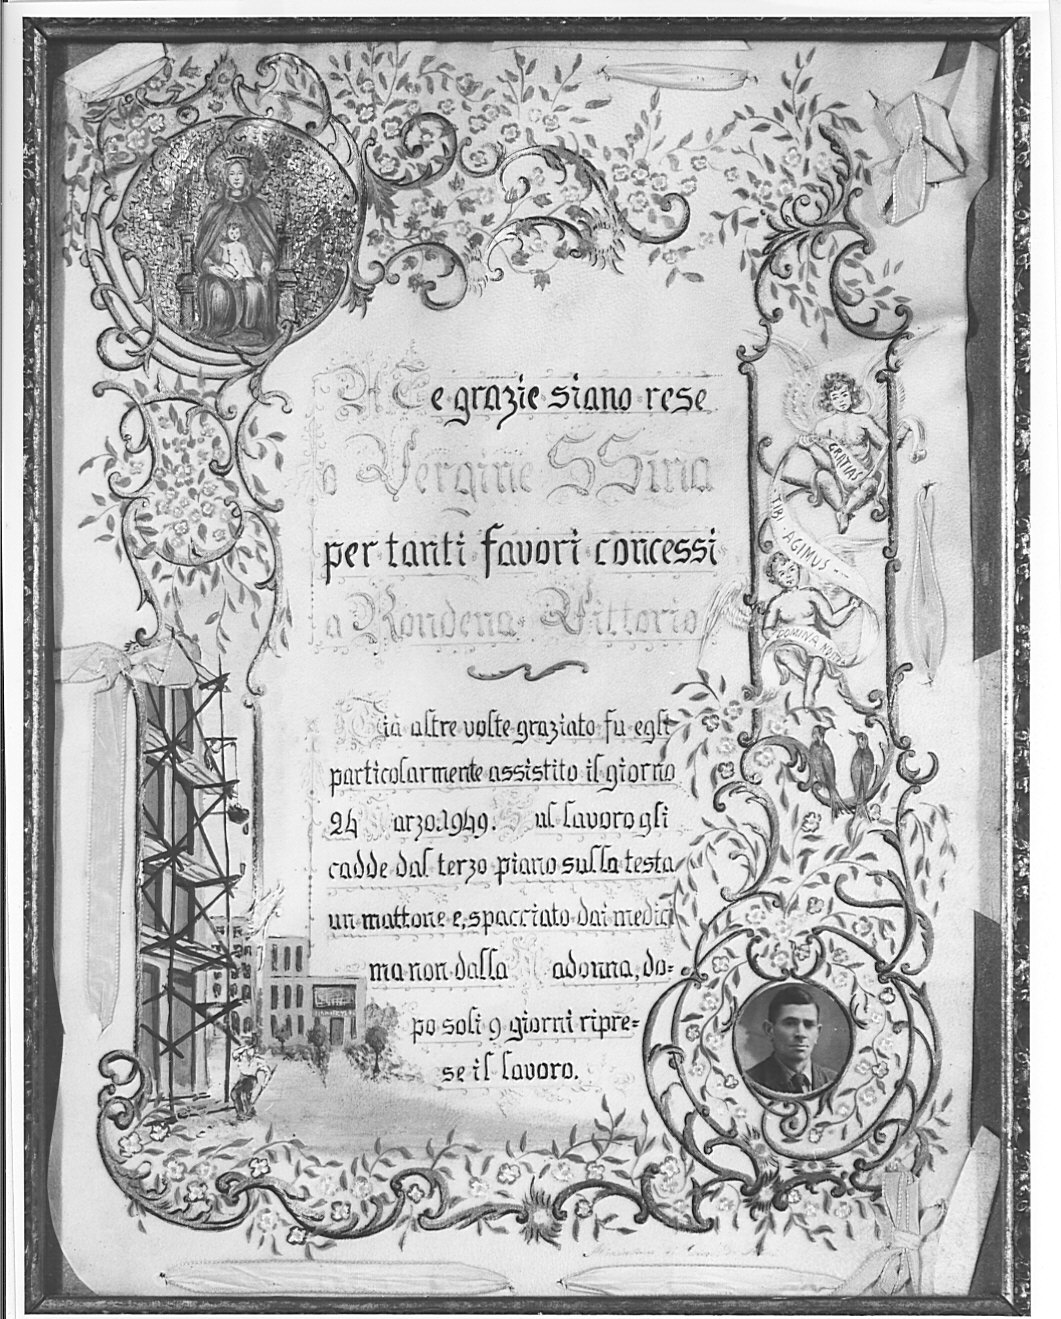 A Te grazie siano rese
o Vergine SSma
per tanti favori concessi
a Rondena Vittorio
Già altre volte graziato fu egli
particolarmente assistito il giorno
24 Marzo 1949. Sul lavoro gli
cadde dal terzo piano sulla testa
un mattone e, spacciato dai medici
ma non dalla Madonna, do=
po soli 9 giorni ripre=
se il lavoro.
GRATIAS
TIBI · AGIMUS
DOMINA